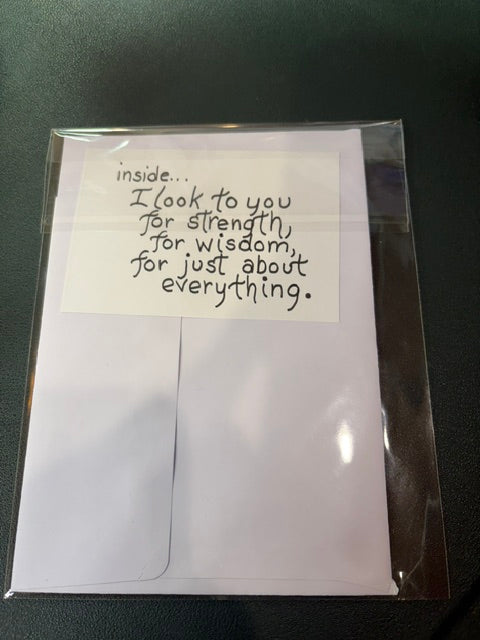 inside...
I look to you
for strength,
for wisdom,
for just about
everything.